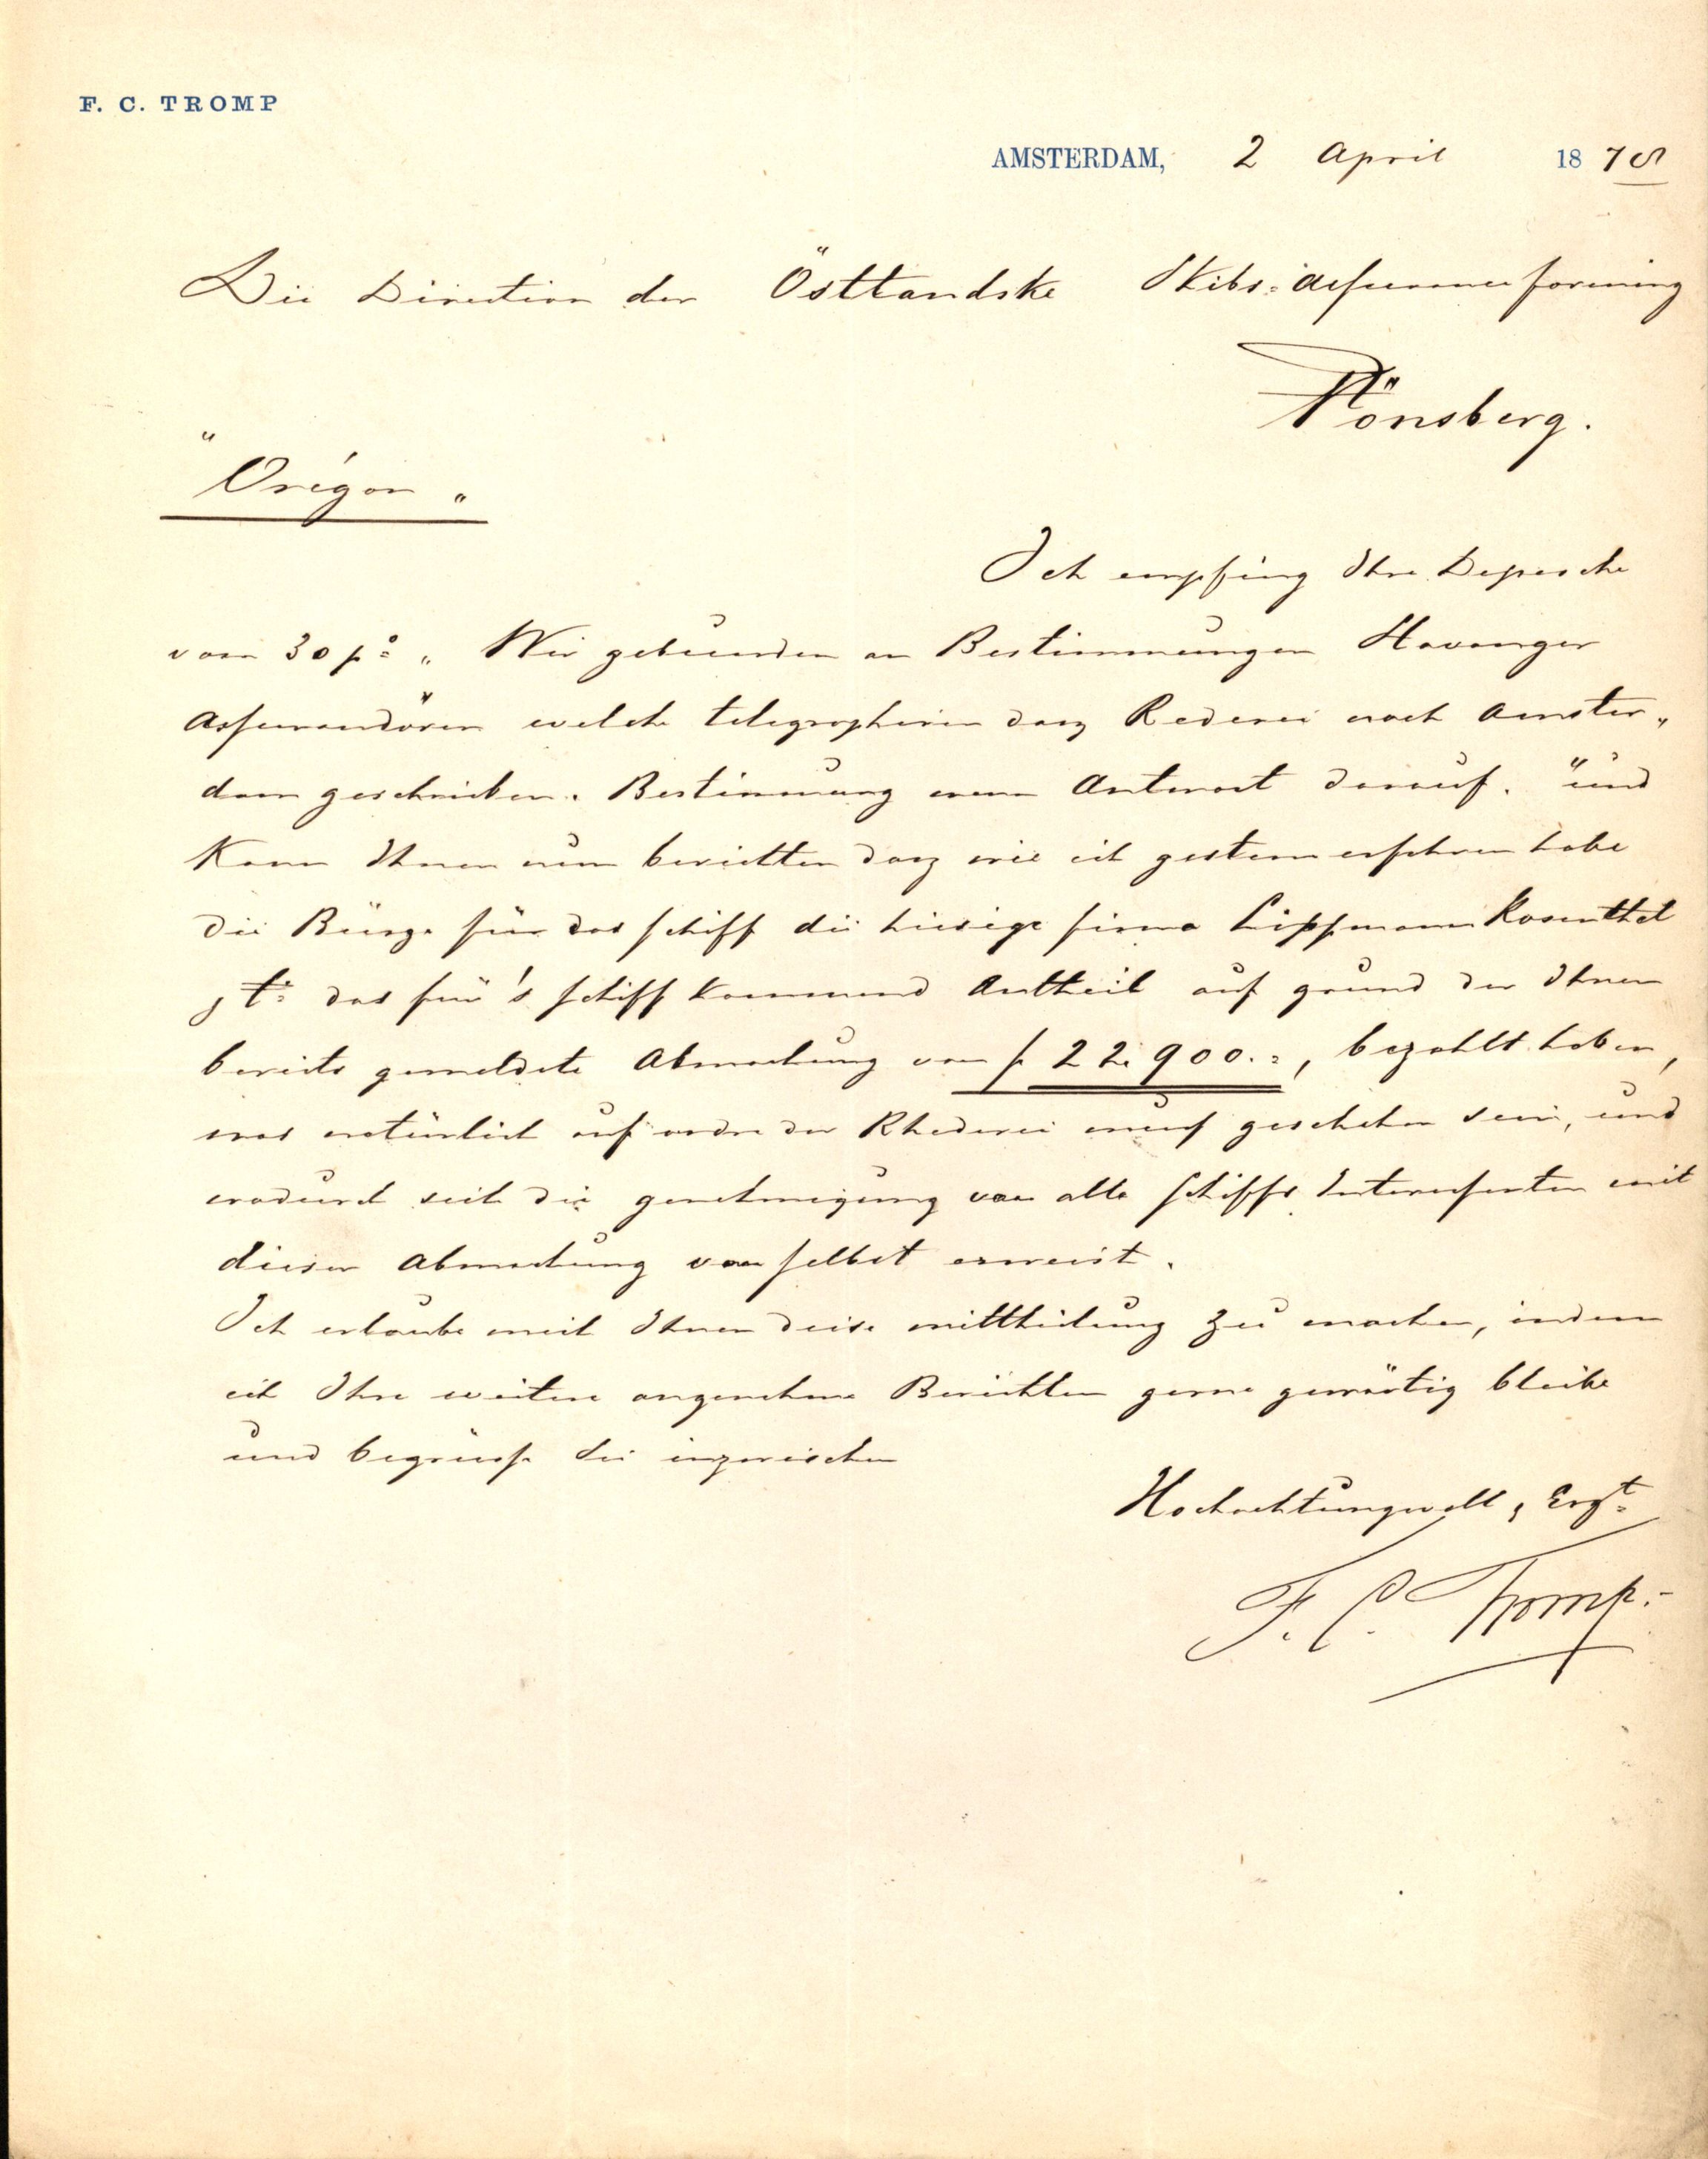 F. C. TROMP
AMSTERDAM, 2 April 1878
Die Direction der Östlandske Skibs-Assuranceforening
Tönsberg.
"Orégon"
Ich empfing Ihre Depesche
vom 30 po. "Wir gebunden an Bestimmungen Stavanger
Assurandören welche telegraphiren dasz Rederei nach Amster-
dam geschrieben. Bestimmung wenn Antwort darauf." und
kann Ihnen nun berichten dasz wie ich gestern erfahren habe
die Bürge für das schiff die hiesige firma Lippmann Rosenthal
& Co. das für's schiff kommend Antheil auf grund der Ihnen
bereits gemeldete Abmachung von f 22.900.=, bezahlt haben,
was natürlich auf ordre der Rhederei musz geschehen sein, und
wodurch sich die genehmigung von alle schiffs Interessenten mit
dieser Abmachung von selbst erweist.
Ich erlaube mich Ihnen diese mittheilung zu machen, indem
ich Ihre weitere angenehme Berichten gerne gewärtig bleibe
und begrüsse Sie inzwischen
Hochachtungsvoll & Ergt.
F. C. Tromp.